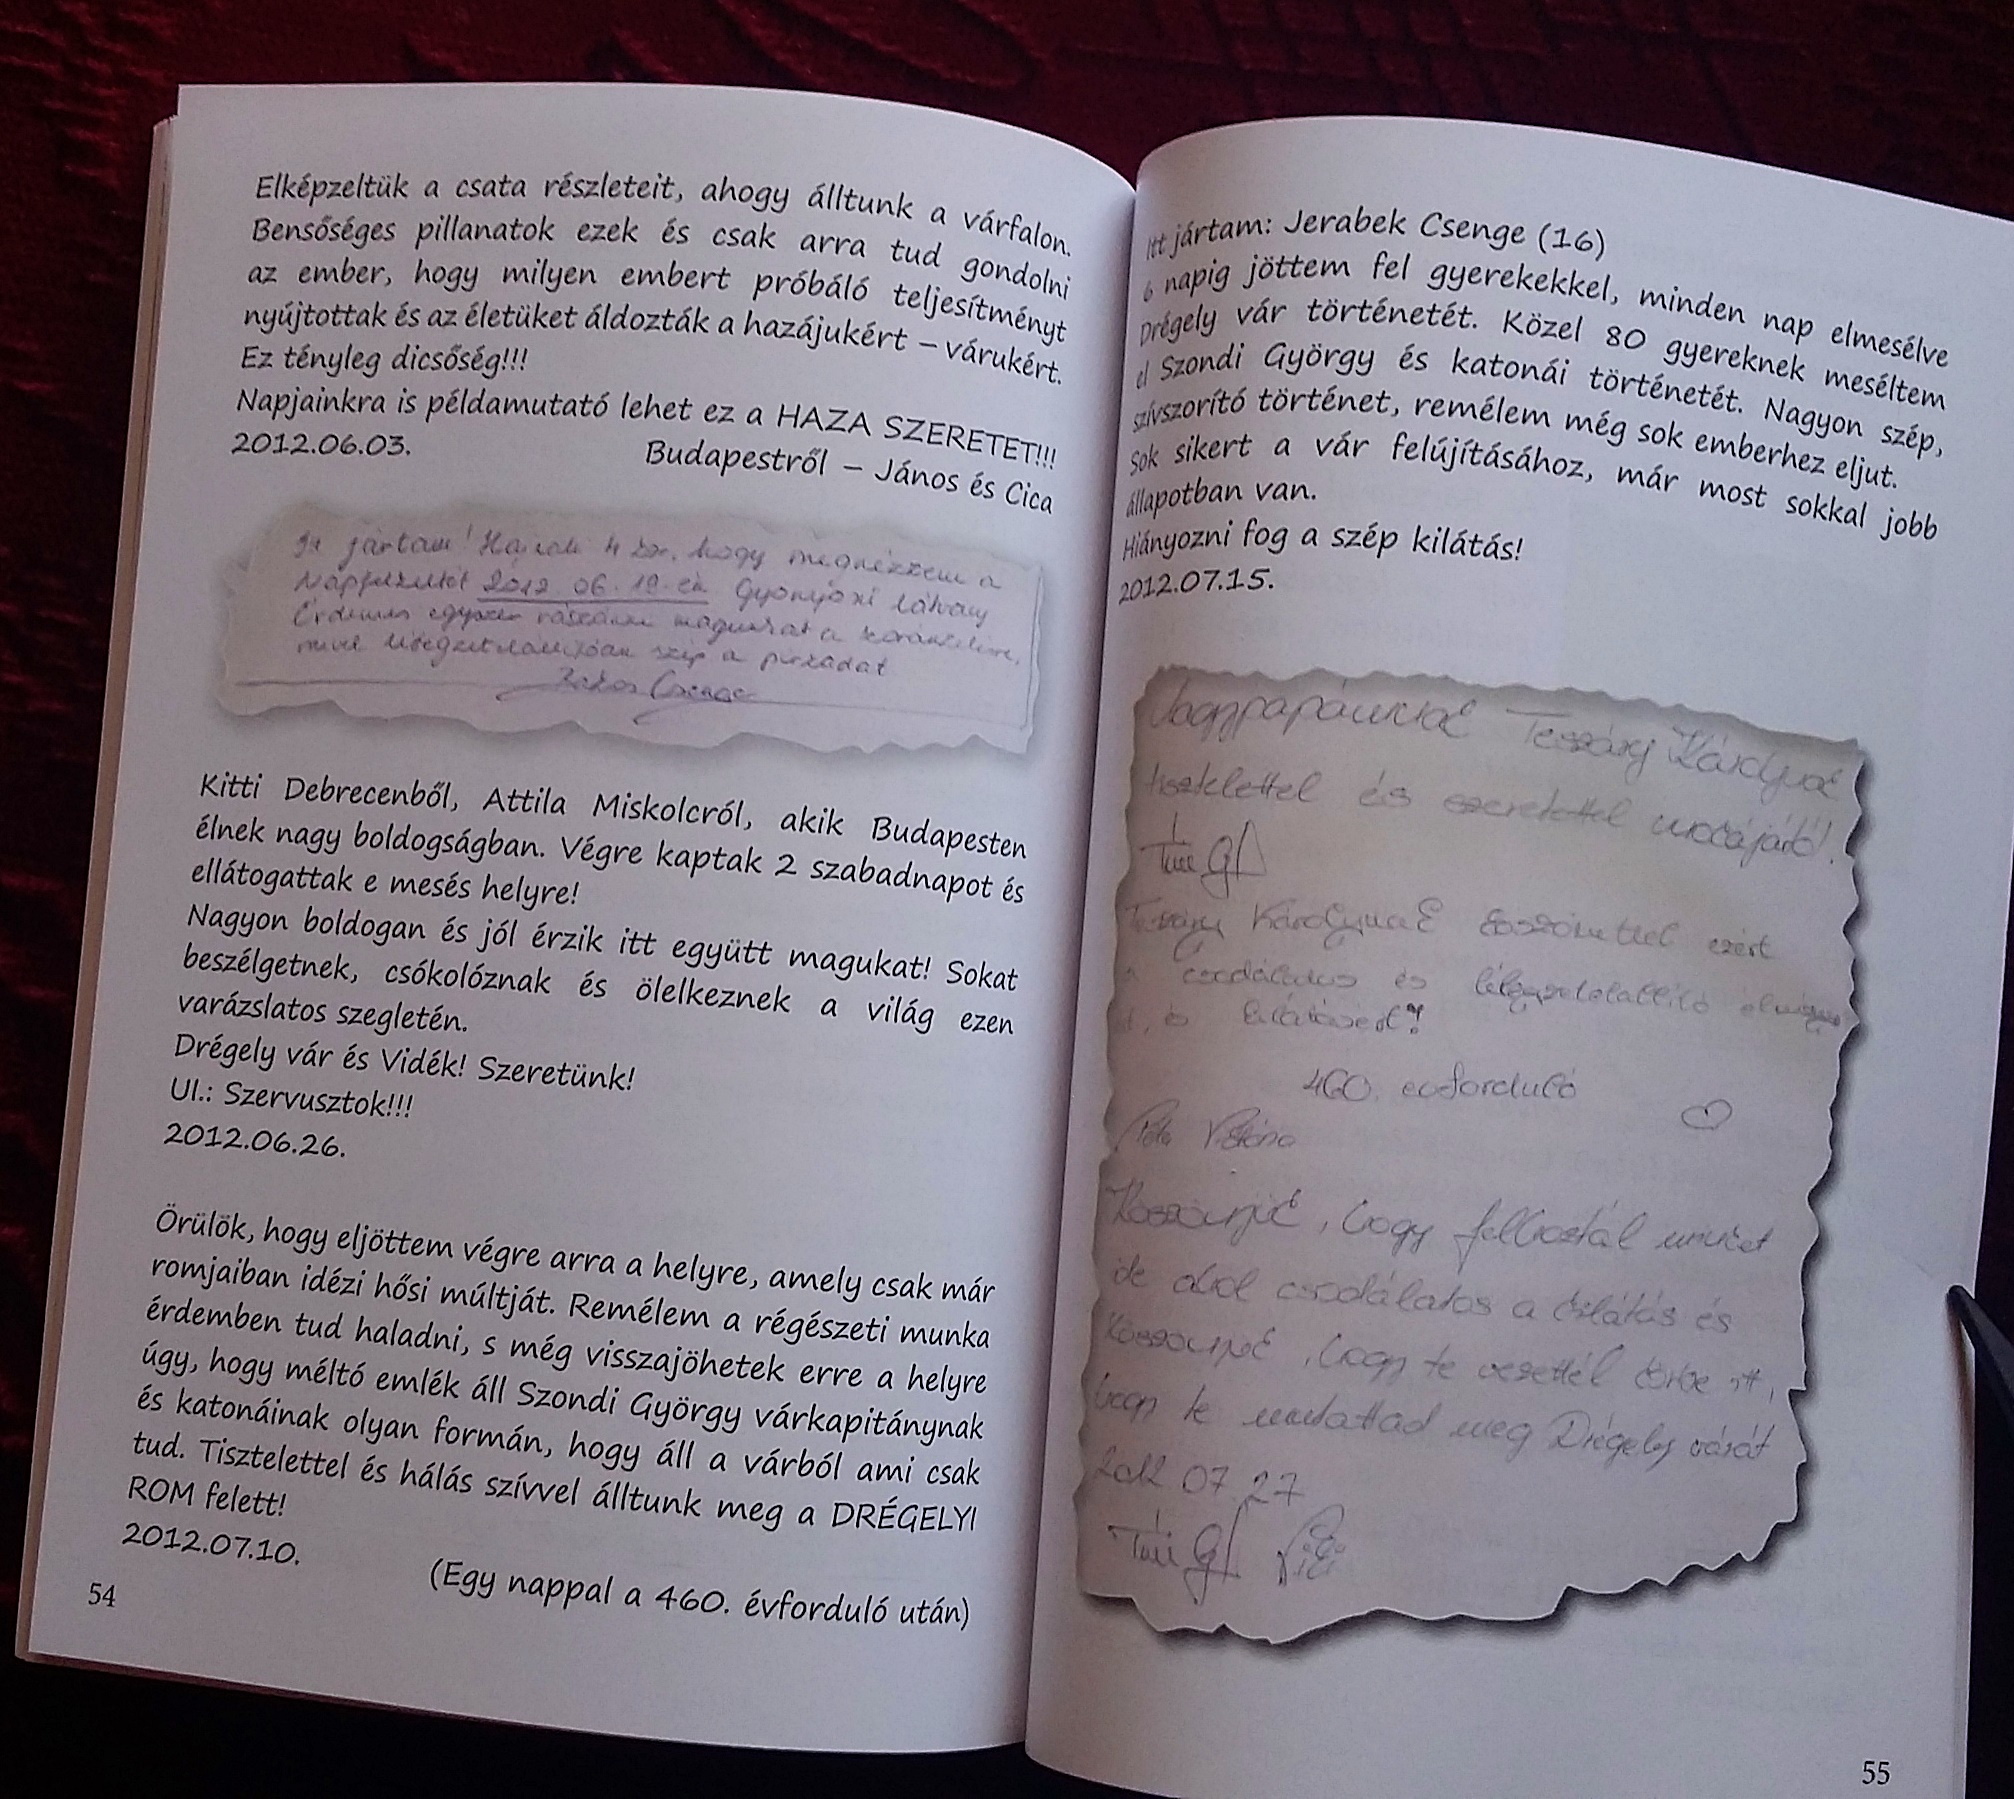 Elképzeltük a csata részleteit, ahogy álltunk a várfalon.
Bensőséges pillanatok ezek és csak arra tud gondolni
az ember, hogy milyen embert próbáló teljesítményt
nyújtottak és az életüket áldozták a hazájukért – várukért.
Ez tényleg dicsőség!!!
Napjainkra is példamutató lehet ez a HAZA SZERETET!!!
2012.06.03. Budapestről – János és Cica
Itt jártam! Hajnali 4 kor, hogy megnézzem a
Napfelkeltét 2012 06. 19-én Gyönyörű látvány
Érdemes egyszer rászánni magunkat a
mivel szép a pirkadat
Kitti Debrecenből, Attila Miskolcról, akik Budapesten
élnek nagy boldogságban. Végre kaptak 2 szabadnapot és
ellátogattak e mesés helyre!
Nagyon boldogan és jól érzik itt együtt magukat! Sokat
beszélgetnek, csókolóznak és ölelkeznek a világ ezen
varázslatos szegletén.
Drégely vár és Vidék! Szeretünk!
Ul.: Szervusztok!!!
2012.06.26.
Örülök, hogy eljöttem végre arra a helyre, amely csak már
romjaiban idézi hősi múltját. Remélem a régészeti munka
érdemben tud haladni, s még visszajöhetek erre a helyre
úgy, hogy méltó emlék áll Szondi György várkapitánynak
és katonáinak olyan formán, hogy áll a várból ami csak
tud. Tisztelettel és hálás szívvel álltunk meg a DRÉGELYI
ROM felett!
2012.07.10.
(Egy nappal a 460. évforduló után)
54
Itt jártam: Jerabek Csenge (16)
6 napig jöttem fel gyerekekkel, minden nap elmesélve
Drégely vár történetét. Közel 80 gyereknek meséltem
el Szondi György és katonái történetét. Nagyon szép,
szívszorító történet, remélem még sok emberhez eljut.
Sok sikert a vár felújításához, már most sokkal jobb
állapotban van.
Hiányozni fog a szép kilátás!
2012.07.15.
Nagypapánknak Teszáry Károlynak
tisztelettel és szeretettel unokájától!
Teszáry Károlynak köszönettel ezért
a csodálatos és lélegzetelállító
és kilátásért!
460. évforduló
Köszönjük, hogy felhoztál minket
ide ahol csodálatos a kilátás és
köszönjük, hogy te vezettél körbe itt,
hogy te mutattad meg Drégely várát
2012 07 27
55